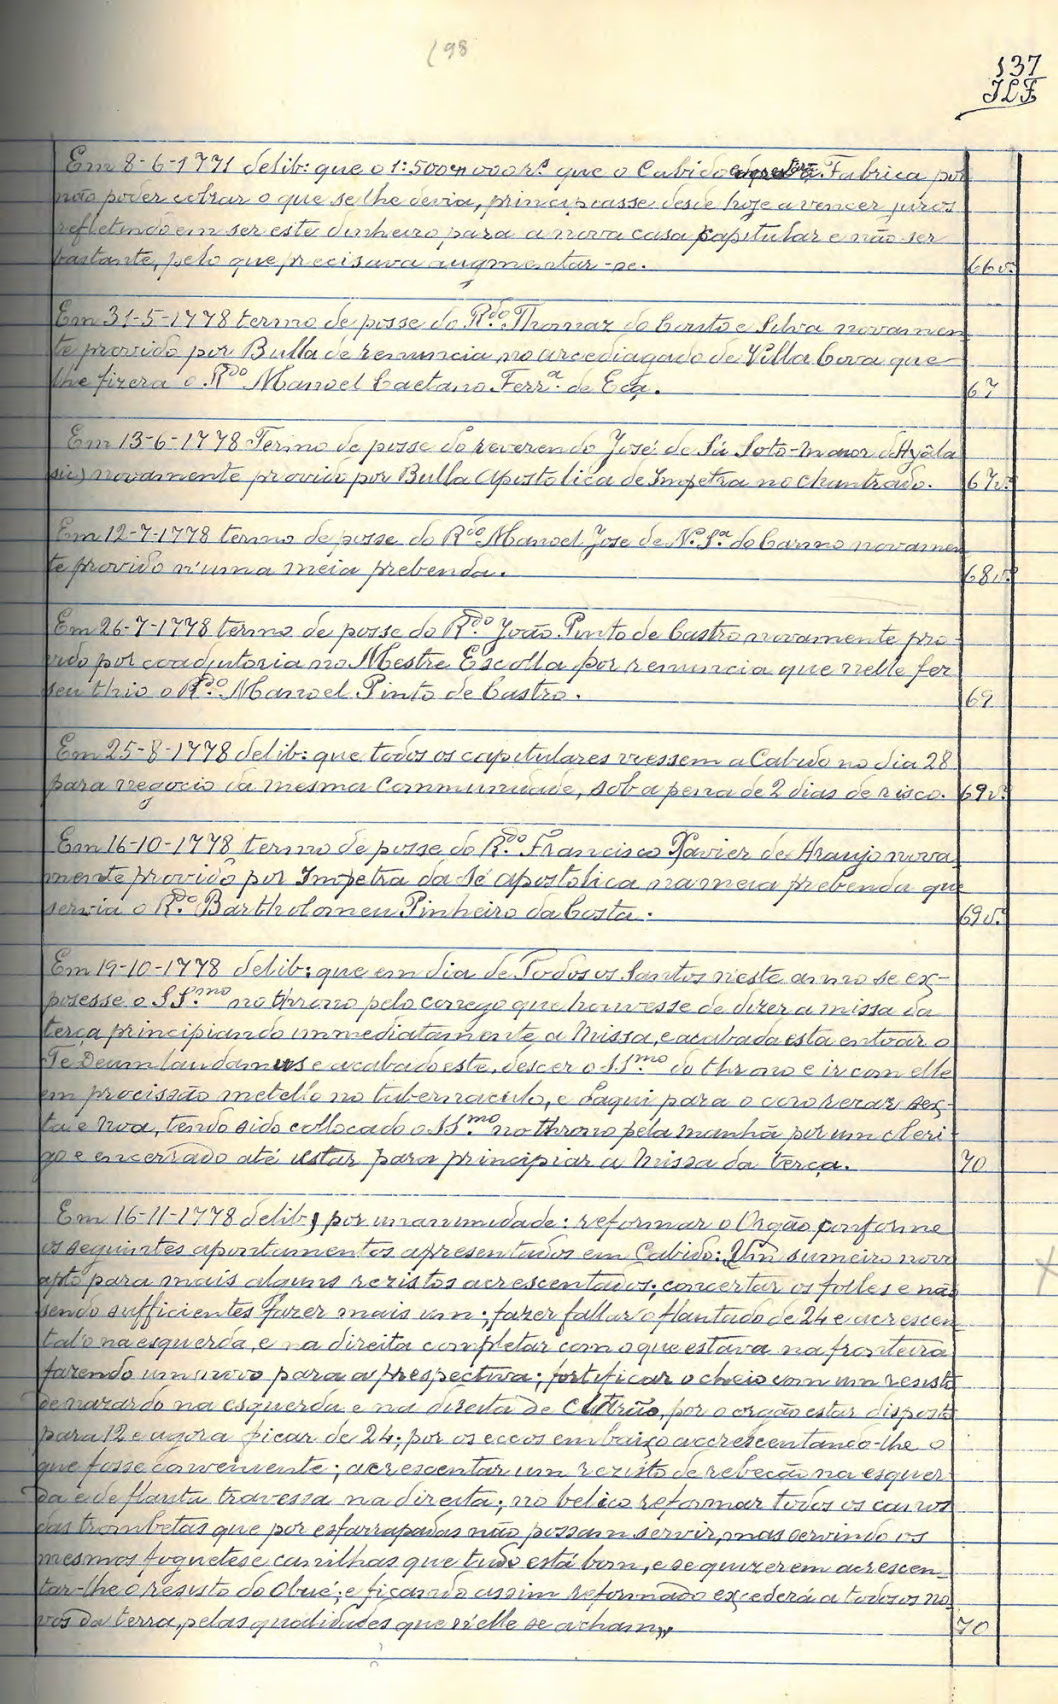 (98
137
JLF
Em 8-6-1771 delib: que o 1:500$000 rs. que o Cabido emprestára á Fabrica por
não poder cobrar o que se lhe devia, principiasse desde hoje a vencer juros
refletindo em ser este dinheiro para a nova casa capitular e não ser
bastante, pelo que precisava augmentar-se. 66v.
Em 31-5-1778 termo de posse do Rdo. Thomaz do Couto e Silva novamen
te provido por Bulla de renuncia no arcediagado de Villa Cova que
lhe fizera o Rdo Manoel Caetano Ferra. de Eça. 67
Em 13-6-1778 Termo de posse do reverendo José de Sá Soto-Maior d'Ayâla
sic) novamente provido por Bulla Apostolica de Impetra no chantrado. 67v.
Em 12-7-1778 termo de posse do Rdo. Manoel Jose de N. Sa. do Carmo novamen
te provido n'uma meia prebenda. 68v.
Em 26-7-1778 termo de posse do Rdo. João Pinto de Castro novamente pro-
vido por coadjutoria no Mestre Escolla por renuncia que nelle fez
seu thio o Rdo. Manoel Pinto de Castro. 69
Em 25-8-1778 delib: que todos os capitulares viessem a Cabido no dia 28
para negocio da mesma Communidade, sob a pena de 2 dias de risco. 69v.
Em 16-10-1778 termo de posse do Rdo. Francisco Xavier de Araujo nova
mente provido por Impetra da Sé apostolica na meia prebenda que
servia o Rdo. Bartholomeu Pinheiro da Costa. 69v.
Em 19-10-1778 delib: que em dia de Todos os Santos n'este anno se ex-
posesse o SS.mo no throno pelo conego que houvesse de dizer a missa da
terça principiando immediatamente a Missa, e acabada esta entoar o
Te Deum laudamus e acabado este, descer o SS.mo do throno e ir com elle
em procissão metel-o no tabernaculo, e d'aqui para o coro rezar sex-
ta e Noa, tendo sido collocado o SS.mo no throno pela manhã por um cleri-
go e encerrado até estar para principiar a Missa da terça. 70
Em 16-11-1778 delib, por unanimidade: reformar o Orgão conforme
os seguintes apontamentos apresentados em Cabido: Um sumeiro novo
apto para mais alguns rezistos acrescentados; concertar os folles e não
sendo sufficientes fazer mais um; fazer fallar o flautado de 24 e acrescen
tal-o na esquerda, e na direita completar com o que estava na fronteira
fazendo um novo para a prespectiva; fortificar o cheio com um resisto
de nazardo na esquerda e na direita de Clarão, por o orgão estar disposto
para 12 e agora ficar de 24; por os eccos em baixo accrescentando-lhe o
que fosse conveniente; acrescentar um rezisto de rebecão na esquer
da e de flauta travessa na direita; no belico reformar todos os canos
das trombetas que por esfarrapadas não possam servir, mas servindo os
mesmos foguetes e canilhas que tudo está bom, e se quizerem acrescen-
tar-lhe o resisto do Obué; e ficando assim reformado excederá a todos os no
vos da terra, pelas qualidades que n'elle se acham,, 70